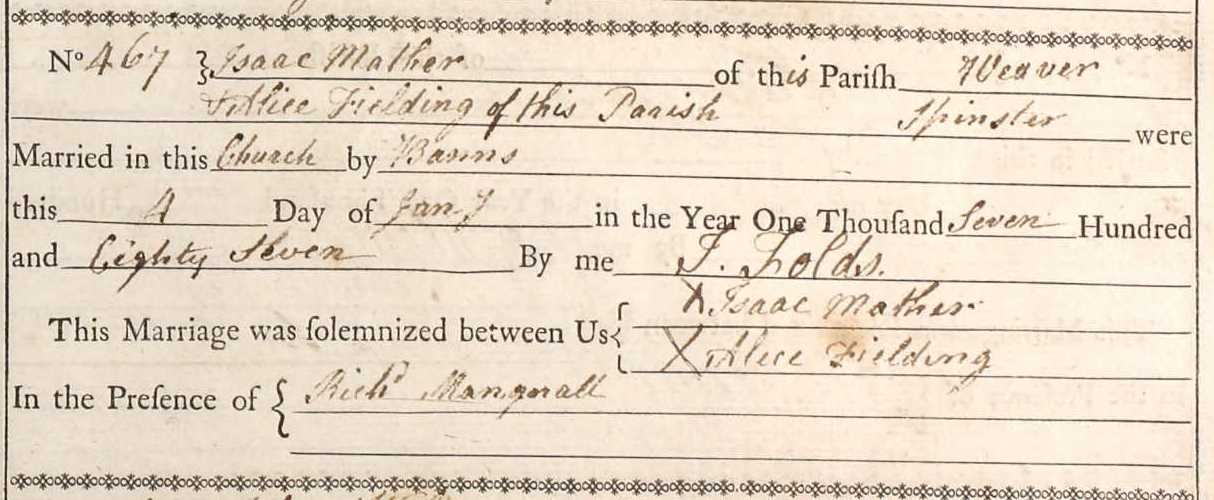 Nº 467 } Isaac Mather of this Pariſh Weaver
& Alice Fielding of this Parish Spinster were
Married in this Church by Banns
this 4 Day of Jany in the Year One Thouſand Seven Hundred
and Eighty Seven By me J. Folds.
X Isaac Mather
This Marriage was ſolemnized between Us {
X Alice Fielding
In the Preſence of { Richd Mangnall